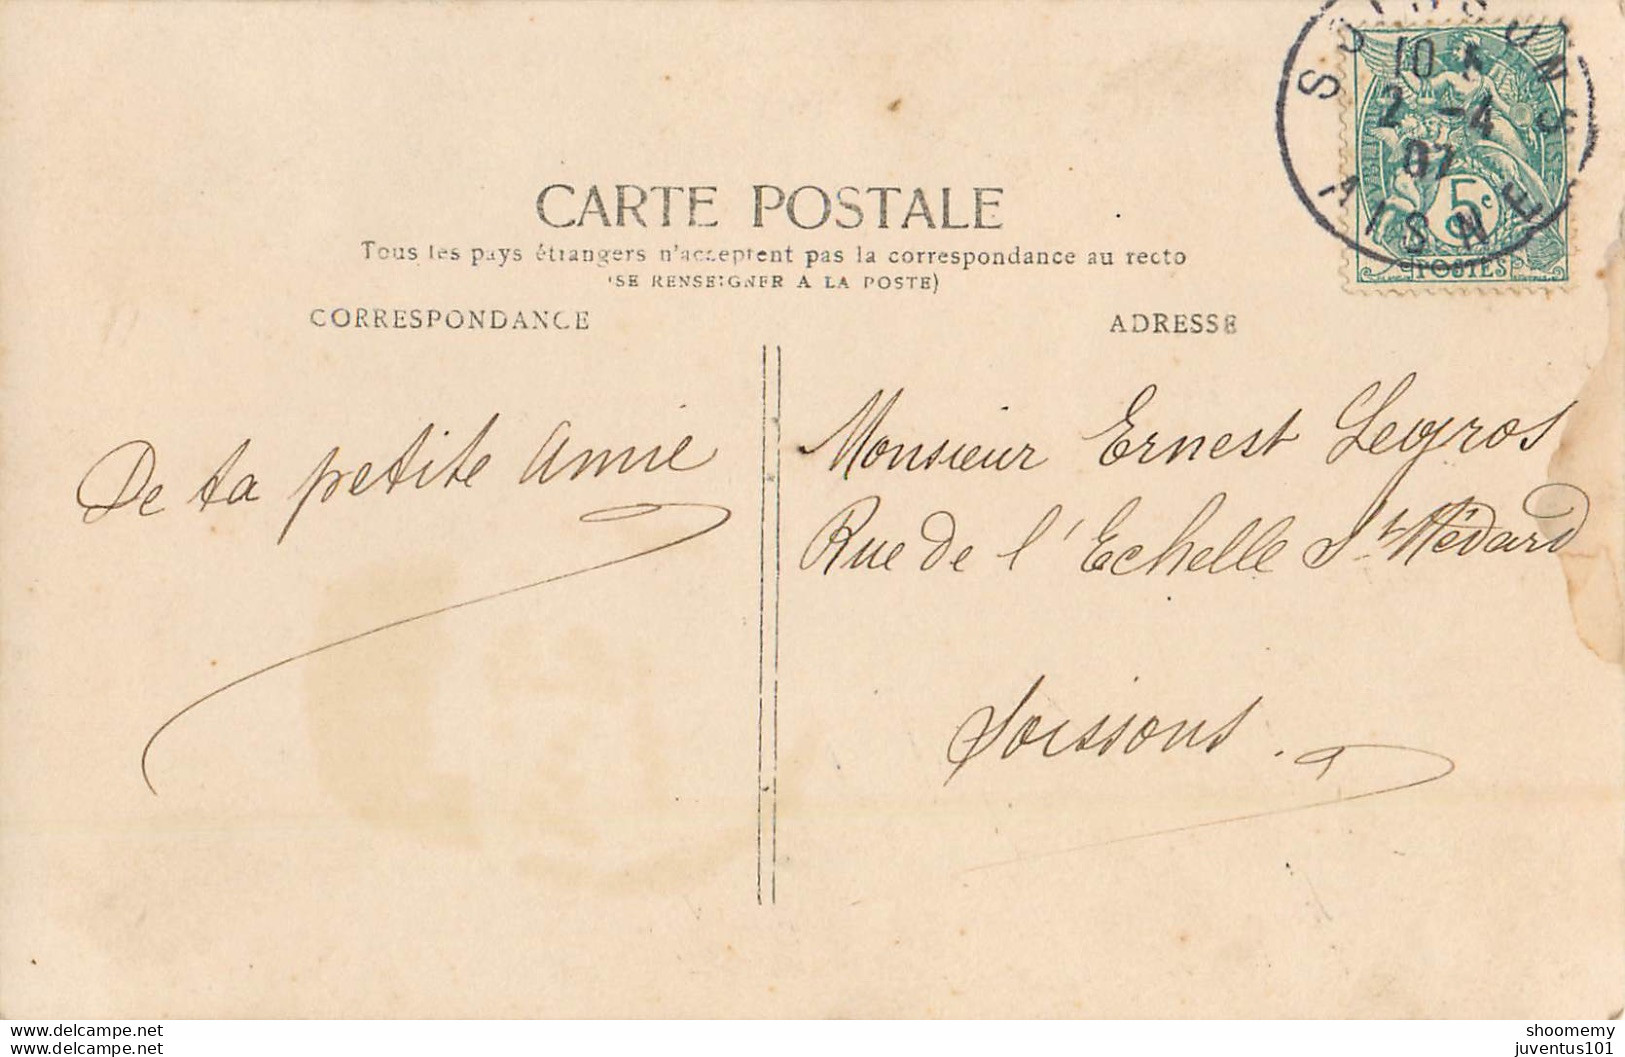 SOISSONS
10
2 -4
07
AISNE
5c
POSTES
CARTE POSTALE
Tous les pays étrangers n'acceptent pas la correspondance au recto
(SE RENSEIGNER A LA POSTE)
CORRESPONDANCE
ADRESSE
De ta petite amie
Monsieur Ernest Legros
Rue de l'Echelle St Médard
Soissons.
www.delcampe.net
www.delcampe.net
shoomemy
juventus101